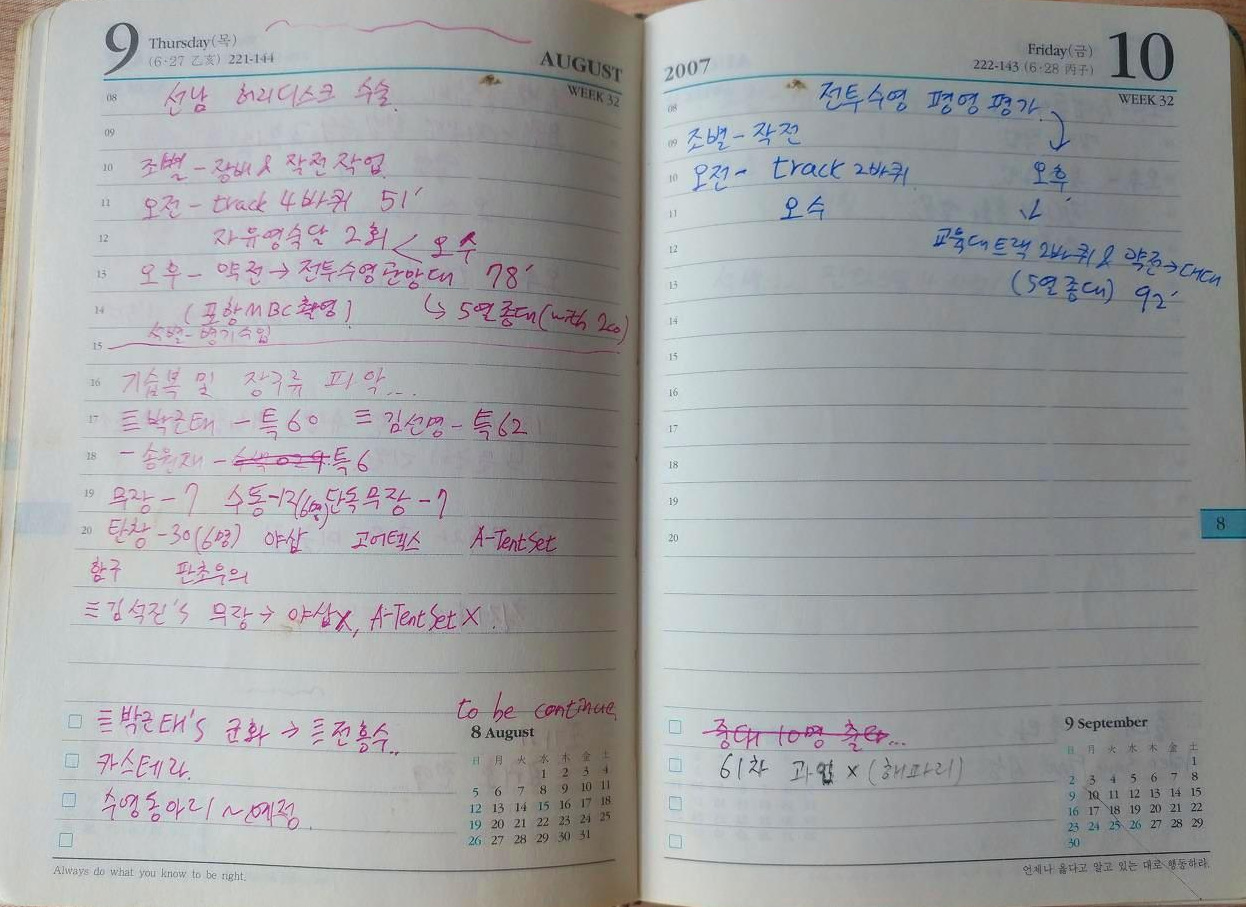 9 Thursday(목)
(6·27 乙亥) 221-144
AUGUST
WEEK 32
08 선남 허리디스크 수술
09
10 조별 - 장비 & 작전작업
11 오전 - track 4바퀴 51'
12 자유영숙달 2회 < 오수
13 오후 - 약전 → 전투수영관망대 78'
14 (포항MBC촬영) ↳ 5열종대(with 2co)
석별-병기수입
15
16 기습복 및 장구류 파악...
17 三박근태 - 특60 三김선명 - 특62
18 一송원재 - 특6
19 무장 - 7 수통-12(6명)단독무장 - 7
20 탄창 - 30(6명) 야삽 고어텍스 A-Tent Set
항구 판초우의
三김석진's 무장 → 야삽x, A-Tent Set X
to be continue
三박근태's 군화 → 三전흥수..
카스테라.
수영동아리 ~ 예정
8 August
日 月 火 水 木 金 土
1 2 3 4
5 6 7 8 9 10 11
12 13 14 15 16 17 18
19 20 21 22 23 24 25
26 27 28 29 30 31
Always do what you know to be right.
2007
Friday(금) 10
222-143 (6·28 丙子)
WEEK 32
08 전투수영 평영평가
09 조별 - 작전
10 오전 - track 2바퀴 오후
11 오수 ↓
12 교육대트랙 2바퀴 & 약전→대대
13 (5열종대) 92'
14
15
16
17
18
19
20
8
중대 10명 출타...
61차 과업 x (해파리)
9 September
日 月 火 水 木 金 土
1
2 3 4 5 6 7 8
9 10 11 12 13 14 15
16 17 18 19 20 21 22
23 24 25 26 27 28 29
30
언제나 옳다고 알고 있는 대로 행동하라.